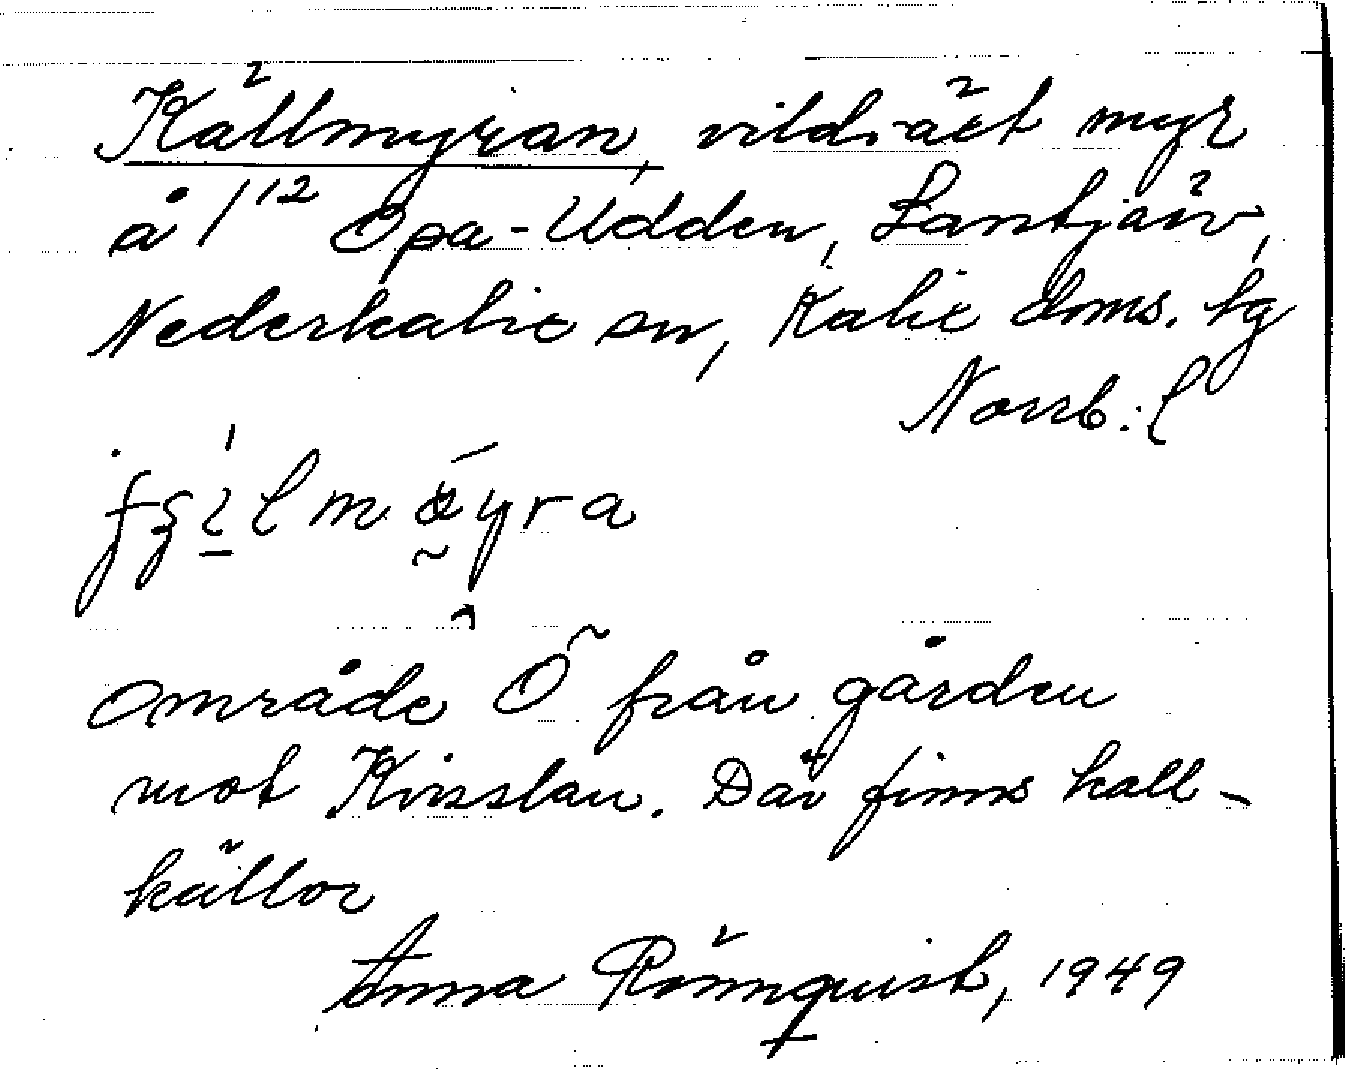 Källmyran, vildväxt myr
å 1¹² Öpa-Udden, Lantjärv,
Nederkalix sn, Kalix doms. tg
Norrb. l
område Ö från gården
mot Kvisslan. Där finns kall-
källor
Anna Rönnquist, 1949